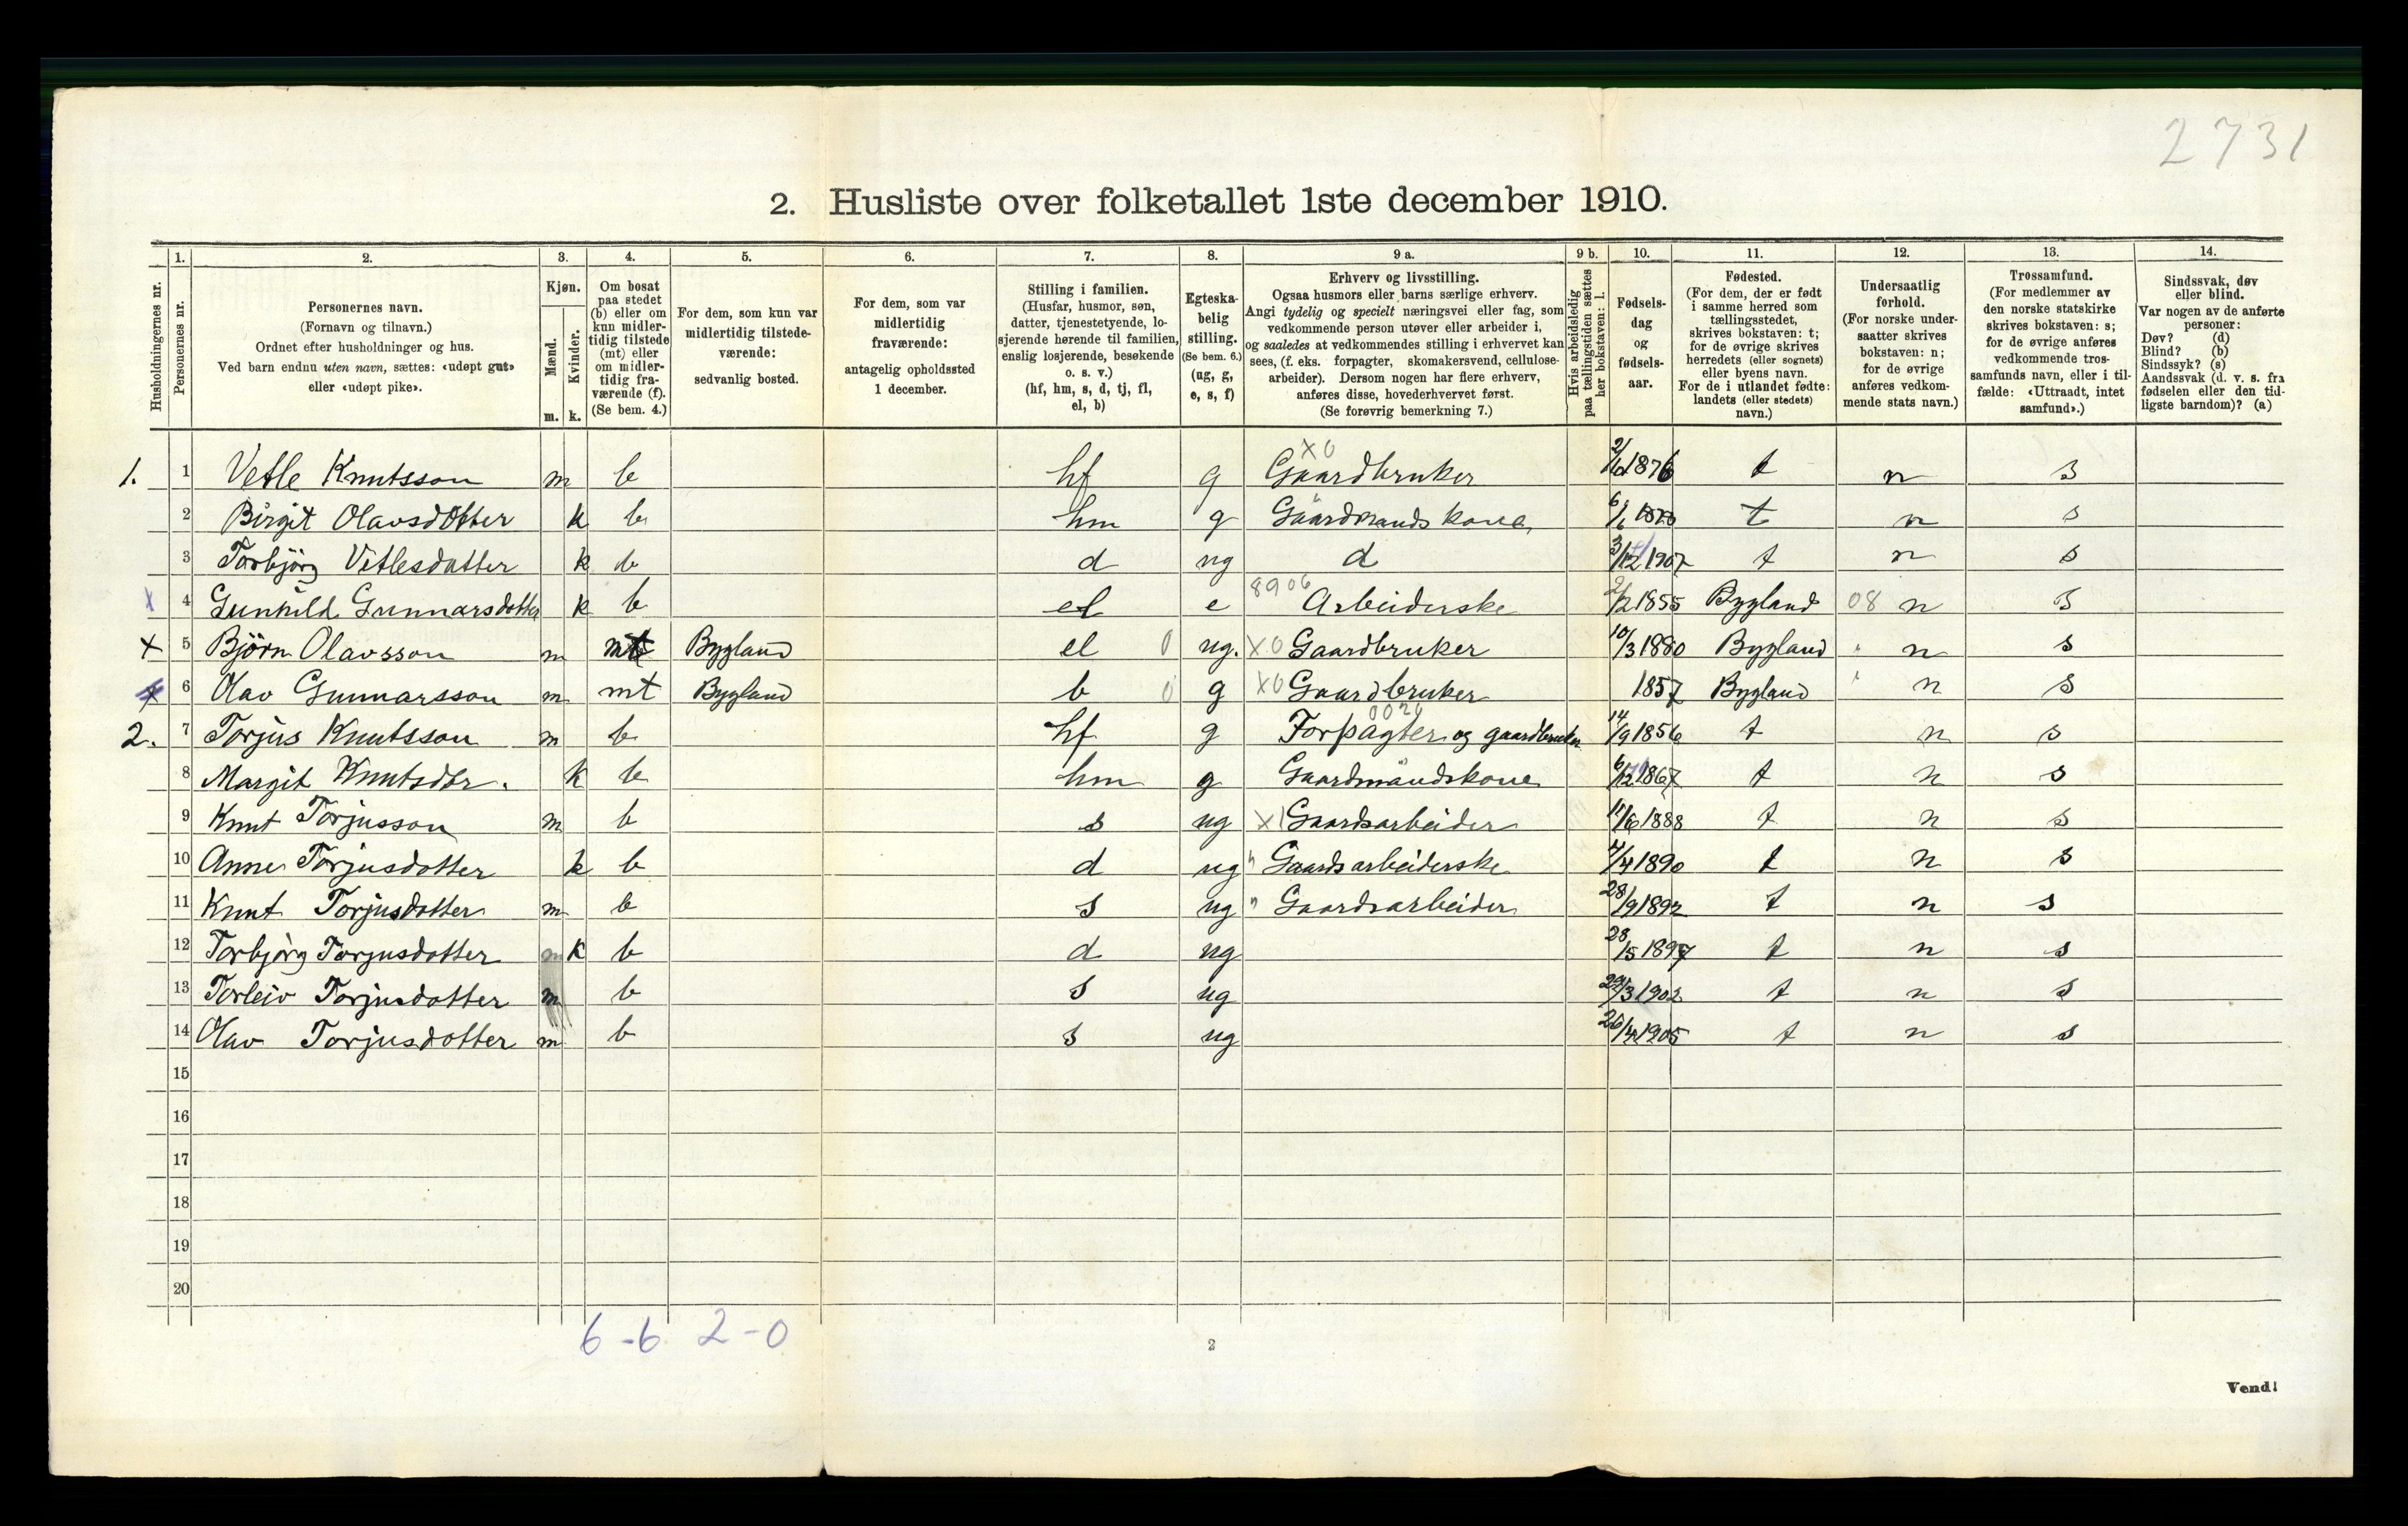 2731
2. Husliste over folketallet 1ste december 1910.
Husholdningernes nr.
1. Personernes nr.
2. Personernes navn. (Fornavn og tilnavn.) Ordnet efter husholdninger og hus. Ved barn endnu uten navn, sættes: «udøpt gut» eller «udøpt pike».
3. Kjøn. Mænd. m. Kvinder. k.
4. Om bosat paa stedet (b) eller om kun midlertidig tilstede (mt) eller om midlertidig fraværende (f). (Se bem. 4.)
5. For dem, som kun var midlertidig tilstedeværende: sedvanlig bosted.
6. For dem, som var midlertidig fraværende: antagelig opholdssted 1 december.
7. Stilling i familien. (Husfar, husmor, søn, datter, tjenestetyende, losjerende hørende til familien, enslig losjerende, besøkende o. s. v.) (hf, hm, s, d, tj, fl, el, b)
8. Egteskabelig stilling. (Se bem. 6.) (ug, g, e, s, f)
9 a. Erhverv og livsstilling. Ogsaa husmors eller barns særlige erhverv. Angi tydelig og specielt næringsvei eller fag, som vedkommende person utøver eller arbeider i, og saaledes at vedkommendes stilling i erhvervet kan sees, (f. eks. forpagter, skomakersvend, cellulosearbeider). Dersom nogen har flere erhverv, anføres disse, hovederhvervet først. (Se forøvrig bemerkning 7.)
9 b. Hvis arbeidsledig paa tællingstiden sættes her bokstaven: l.
10. Fødselsdag og fødselsaar.
11. Fødested. (For dem, der er født i samme herred som tællingsstedet, skrives bokstaven: t; for de øvrige skrives herredets (eller sognets) eller byens navn. For de i utlandet fødte: landets (eller stedets) navn.)
12. Undersaatlig forhold. (For norske undersaatter skrives bokstaven: n; for de øvrige anføres vedkommende stats navn.)
13. Trossamfund. (For medlemmer av den norske statskirke skrives bokstaven: s; for de øvrige anføres vedkommende trossamfunds navn, eller i tilfælde: «Uttraadt, intet samfund».)
14. Sindssvak, døv eller blind. Var nogen av de anførte personer: Døv? (d) Blind? (b) Sindssyk? (s) Aandssvak (d. v. s. fra fødselen eller den tidligste barndom)? (a)
1. 1 Vetle Knutsson m b hf g X0 Gaardbruker 1876 t n s
2 Birgit Olavsdotter k b hm g Gaardmandskone 6/6 t n s
3 Torbjörg Vetlesdatter k b d ug d 3/12 1907 t n s
x 4 Gunhild Gunnarsdotter k b el e 8906 Arbeiderske 2/2 1855 Bygland 08 n s
x 5 Björn Olavsson m mt Bygland el 0 ug. X0 Gaardbruker 10/3 1880 Bygland " n s
x 6 Olav Gunnarsson m mt Bygland b 0 g X0 Gaardbruker 1857 Bygland " n s
2. 7 Torjus Knutsson m b hf g Forpagter og gaardbruker 14/9 1856 t n s
8 Margit Knutsdtr. k b hm g Gaardmandskone 6/12 1867 t n s
9 Knut Torjusson m b s ug X1 Gaardsarbeider 11/6 1888 t n s
10 Anne Torjusdotter k b d ug " Gaardsarbeiderske 7/4 1890 t n s
11 Knut Torjusdotter m b s ug " Gaardsarbeider 28/9 1892 t n s
12 Torbjörg Torjusdotter m k b d ug 28/5 1897 t n s
13 Torleiv Torjusdotter m b s ug 29/3 1902 t n s
14 Olav Torjusdotter m b s ug 26/4 1905 t n s
15
16
17
18
19
20
6-6 2-0
2
Vend!